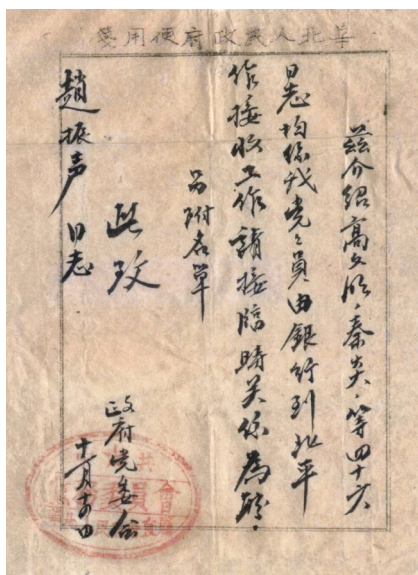 華北人民政府便用箋
茲介紹高文、秦炎、等四十六
同志均係我党々員由銀行到北平
作接收工作請接臨時关係為盼。
另附名單
此致
趙振声同志
政府党委会